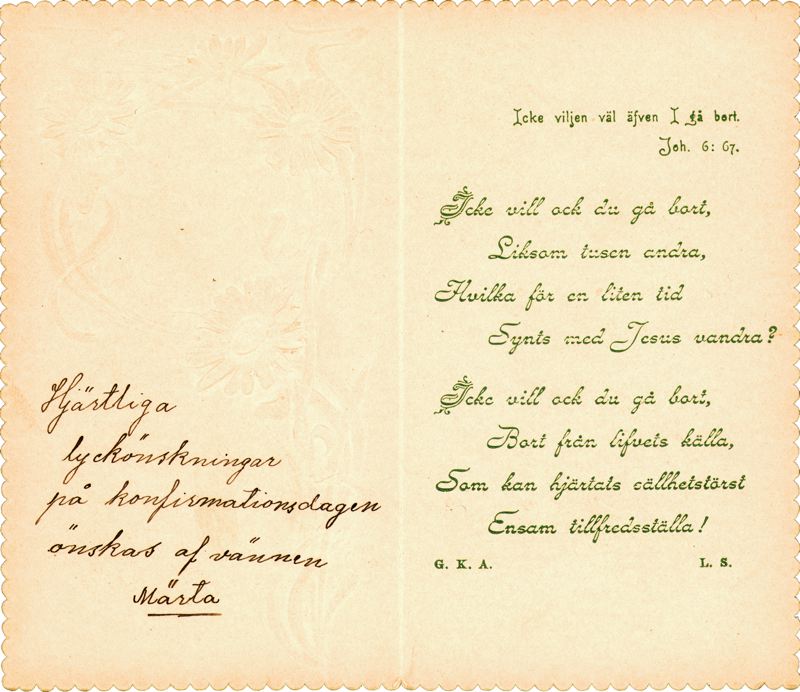 Hjärtliga
lyckönskningar
på konfirmationsdagen
önskas af vännen
Märta
Icke viljen väl äfven I gå bort.
Joh. 6: 67.
Icke vill ock du gå bort,
Liksom tusen andra,
Hvilka för en liten tid
Synts med Jesus vandra?
Icke vill ock du gå bort,
Bort från lifvets källa,
Som kan hjärtats sällhetstörst
Ensam tillfredsställa!
G. K. A. L. S.